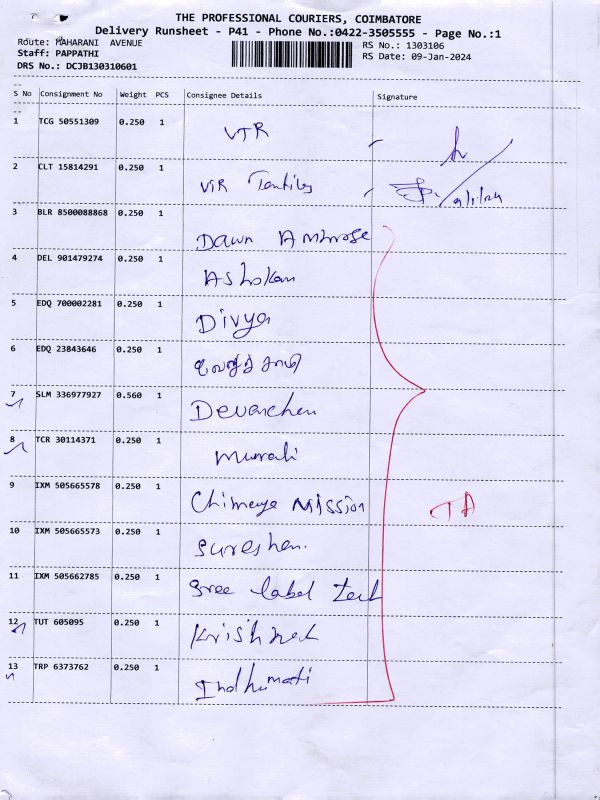 THE PROFESSIONAL COURIERS, COIMBATORE
Delivery Runsheet - P41 - Phone No.:0422-3505555 - Page No.:1
Route: MAHARANI AVENUE
RS No.: 1303106
Staff: PAPPATHI
RS Date: 09-Jan-2024
DRS No.: DCJB130310601
S No Consignment No Weight PCS Consignee Details Signature
1 TCG 50551309 0.250 1 VTR
2 CLT 15814291 0.250 1 VTR 9/1/24
3 BLR 8500088868 0.250 1 Dawn Ambrose
4 DEL 901479274 0.250 1 Ashokan
5 EDQ 700002281 0.250 1 Divya
6 EDQ 23843646 0.250 1
7 SLM 336977927 0.560 1
8 TCR 30114371 0.250 1 Murali
9 IXM 505665578 0.250 1 Mission TA
10 IXM 505665573 0.250 1
11 IXM 505662785 0.250 1 Sree label
12 TUT 605095 0.250 1
13 TRP 6373762 0.250 1 Indhumati